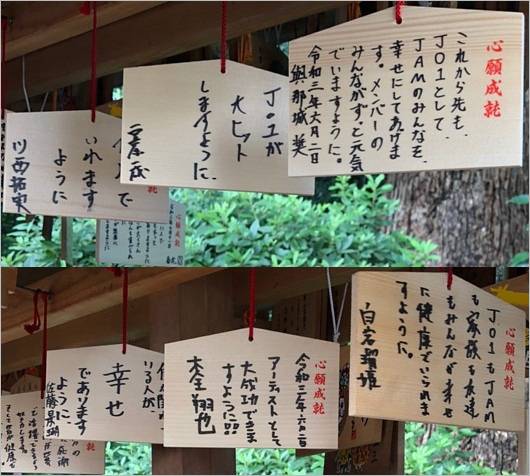 心願成就
これから先も、
JO1として、
JAMのみんなを、
幸せにしてあげま
す。メンバーの
みんながずっと元気
でいますように。
令和三年六月二日
與那城 奨
JO1が
大ヒット
しますように、
心願成就
いれます
ように
川西拓実
心願成就
心願成就
JO1もJAM
も家族も友達
もみんなが幸せ
に健康でいられま
すように。
白岩瑠姫
心願成就
令和三年六月二日
アーティストとして
大成功できま
すように!!
木全翔也
幸せ
であります
ように
佐藤景瑚